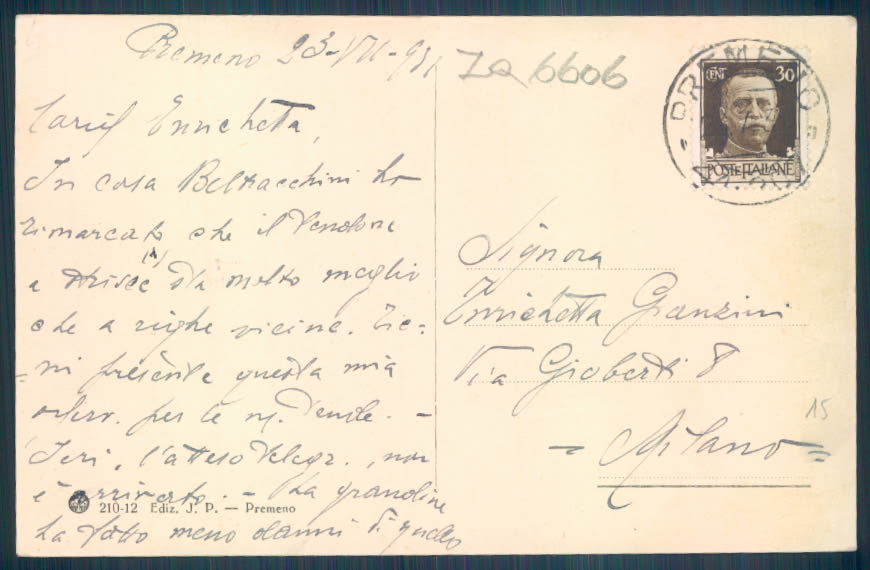 Premeno 23-VII-93
Enrichetta,
In casa Beltracchini ho
rimarcato che il tendone
a strisce sta molto meglio
che a righe vicine. Tie-
=ni presente questa mia
osserv. per le ns. tende. -
Ieri, l'atteso telegr., non
è arrivato. - La grandine
ha fatto meno danni di quello
210-12 Ediz. J. P. — Premeno
ZQ 6606
PREMENO
CENT 30
POSTE ITALIANE
Signora
Enrichetta Granzini
Via Gioberti 8
- Milano =
15